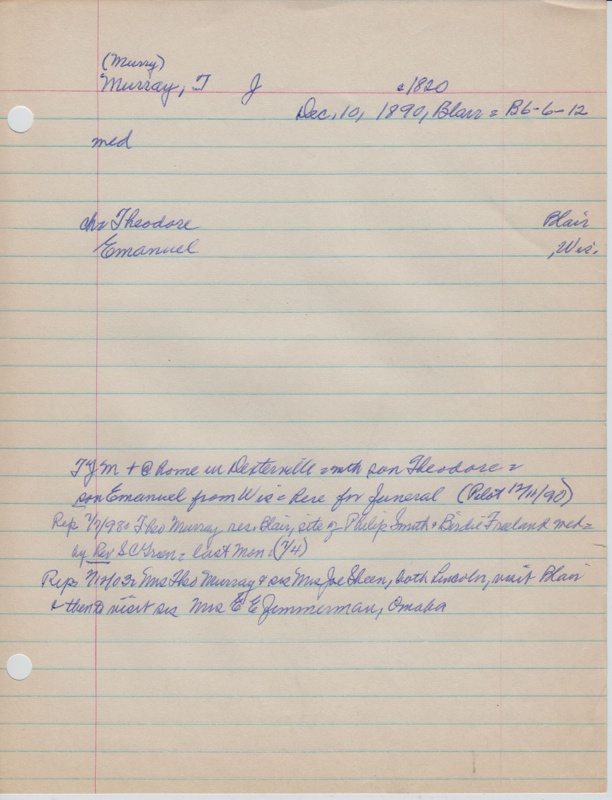 (Murry)
Murray, T J c1820
Dec, 10, 1890, Blair = B6-6-12
med
chr Theodore Blair
Emanuel , Wis.
TJM + @ home in Dexterville = with son Theodore =
son Emanuel from Wis = here for funeral (Pilot 12/11/90)
Rep 7/7/98 = Theo Murray res. Blair, site of Philip Smith + Birdie Freeland med =
by Rev S C Green = last Mon. (7/4)
Rep Mrs Theo Murray + sis Mrs Joe Sheen, both Lincoln, visit Blair
+ then visit sis Mrs E E Zimmerman, Omaha